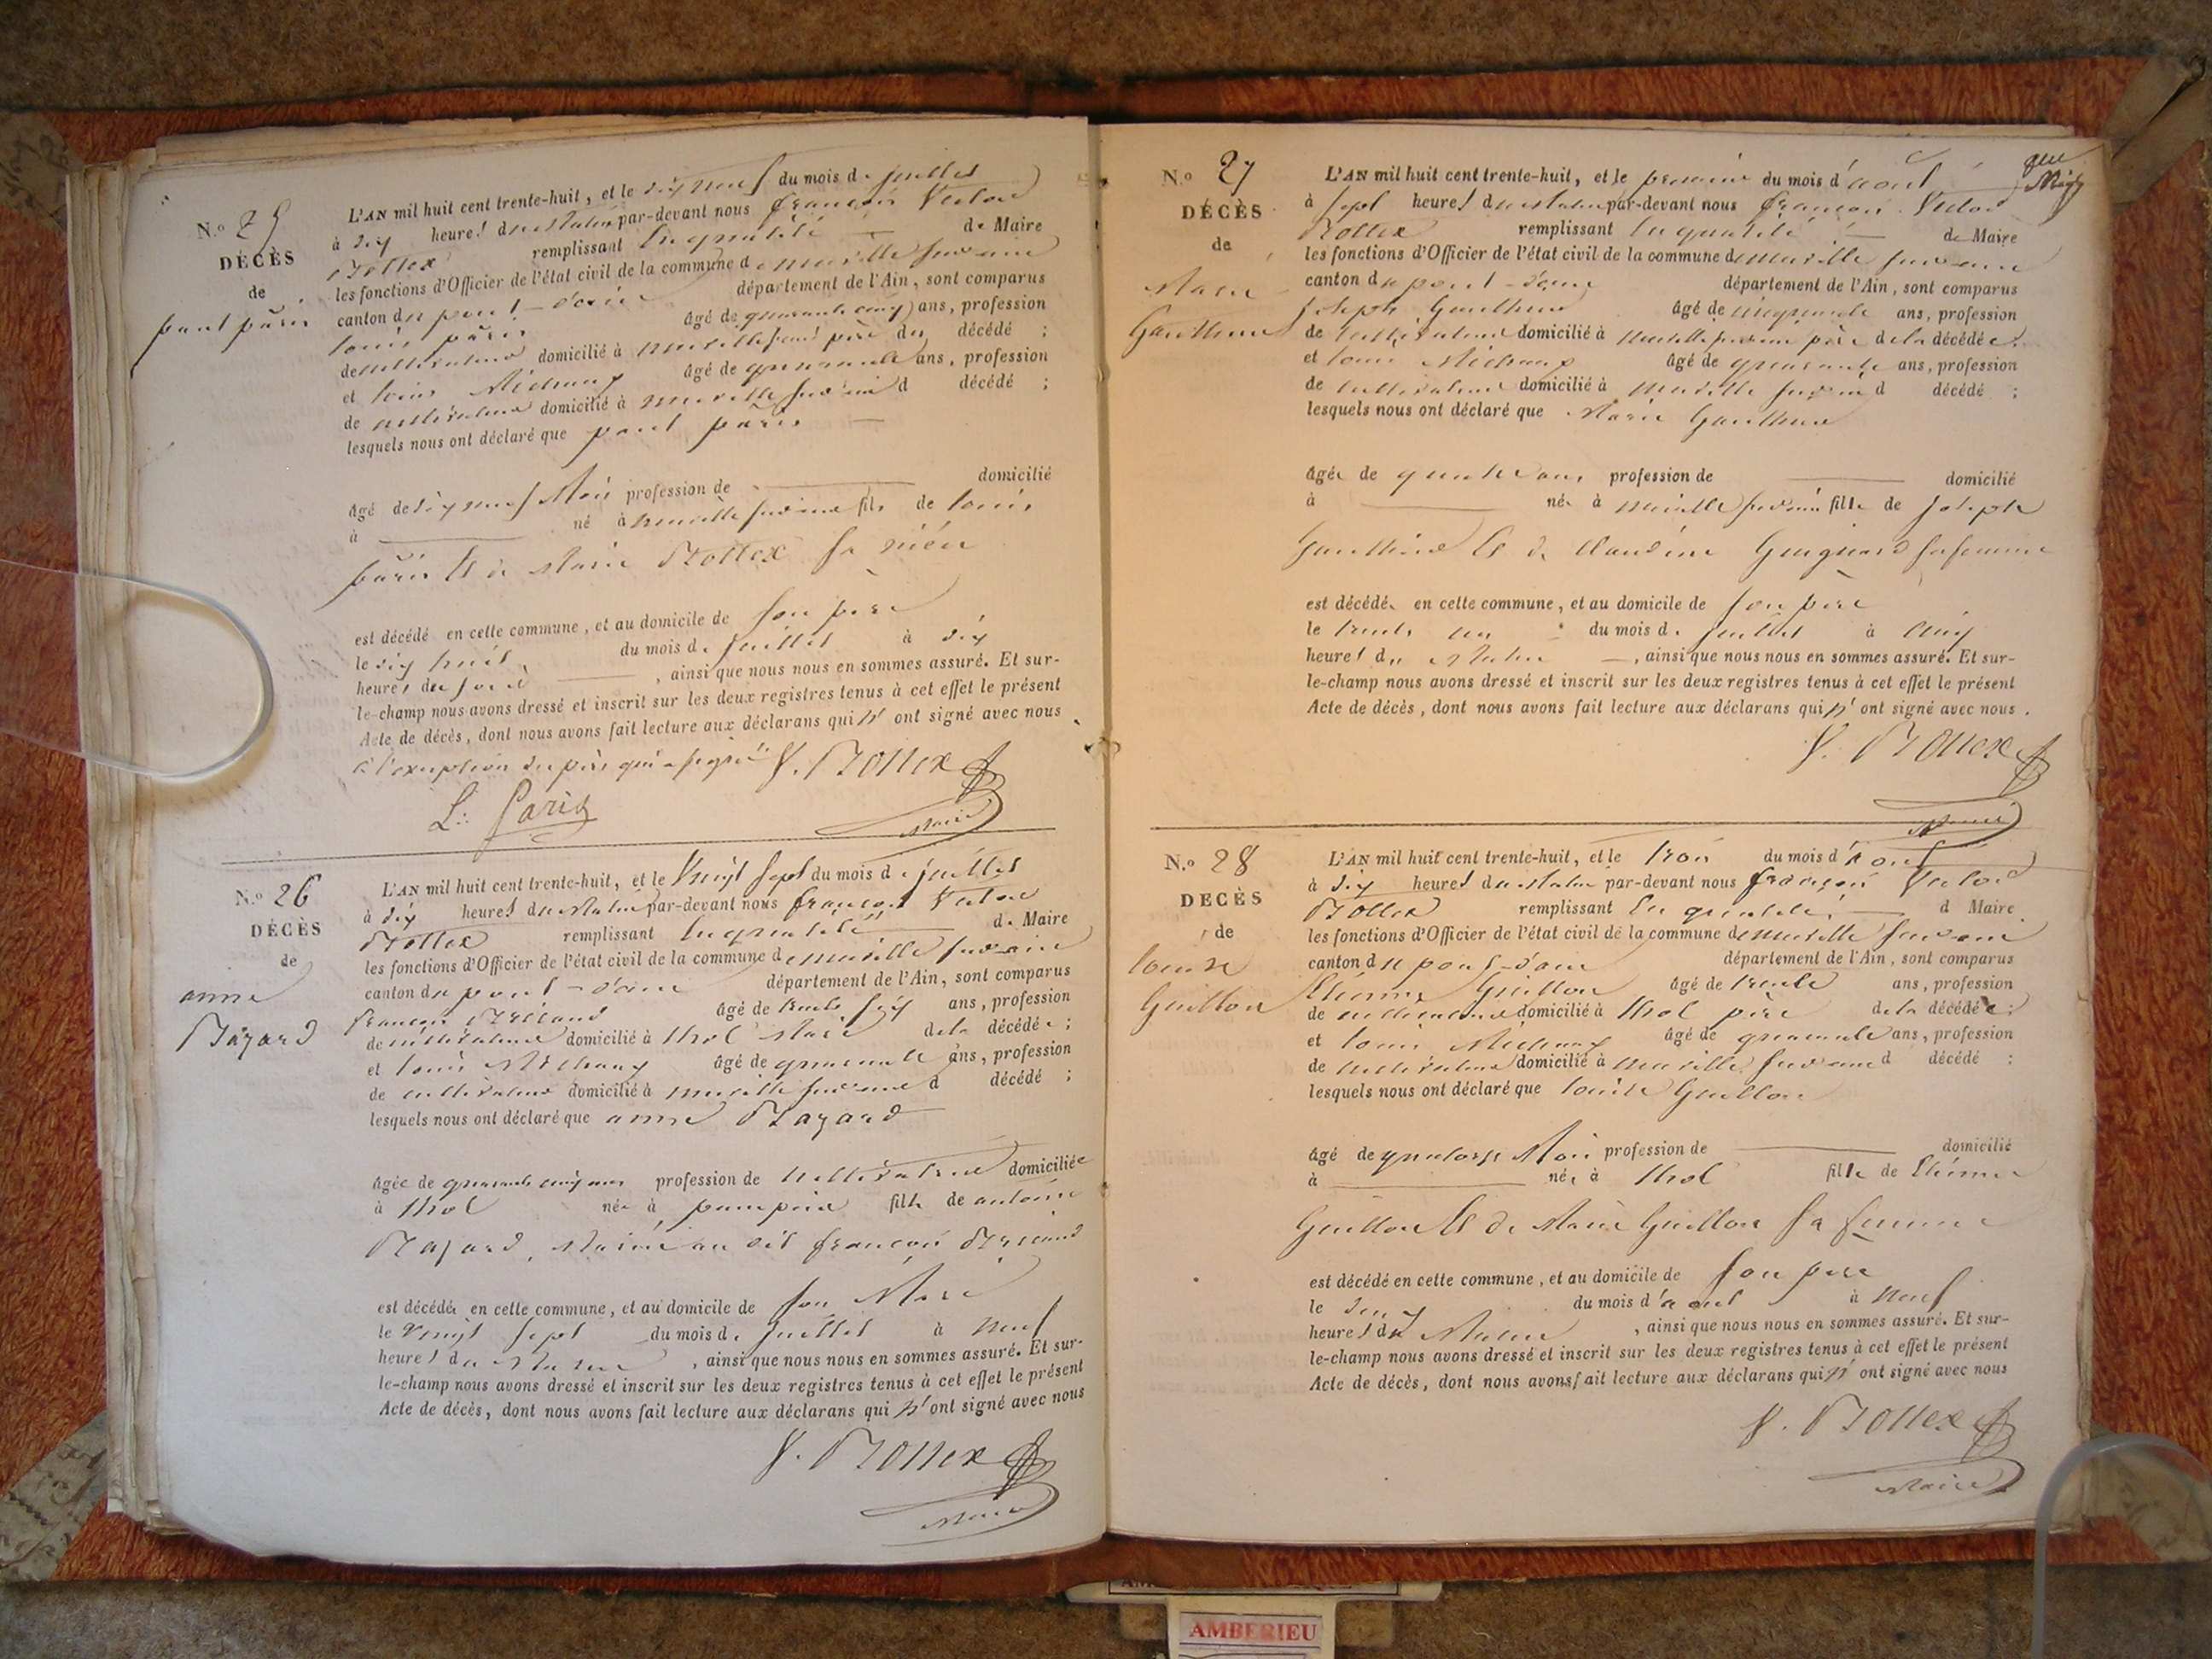 N.o 25
DÉCÈS
de
paul pâris
L'AN mil huit cent trente-huit, et le dix neuf du mois de juillet
à dix heures du matin par-devant nous françois Victor
Bollex remplissant en qualité de Maire
les fonctions d'Officier de l'état civil de la commune de neuville sur ain
canton du pont-d'ain département de l'Ain, sont comparus
louis pâris âgé de quarante cinq ans, profession
de cultivateur domicilié à neuville sur ain père du décédé ;
et louis Michaux âgé de quarante ans, profession
de cultivateur domicilié à neuville sur ain d décédé ;
lesquels nous ont déclaré que paul pâris
âgé de dix neuf Mois profession de domicilié
à né à neuville sur ain fils de louis
pâris et de Marie Bollex sa mère
est décédé en cette commune, et au domicile de son père
le dix huit du mois de juillet à dix
heures du soir , ainsi que nous nous en sommes assuré. Et sur-
le-champ nous avons dressé et inscrit sur les deux registres tenus à cet effet le présent
Acte de décès, dont nous avons fait lecture aux déclarans qui n' ont signé avec nous
à l'exeption du père qui a signé V. Bollex
L: Paris Maire
N.o 26
DÉCÈS
de
anne
Bazard
L'AN mil huit cent trente-huit, et le Vingt sept du mois de juillet
à dix heures du Matin par-devant nous françois Victor
Bollex remplissant en qualité de Maire
les fonctions d'Officier de l'état civil de la commune de neuville sur ain
canton du pont-d'ain département de l'Ain, sont comparus
françois âgé de trente six ans, profession
de cultivateur domicilié à thol Mari de la décédée ;
et louis Michaux âgé de quarante ans, profession
de cultivateur domicilié à neuville sur ain d décédé ;
lesquels nous ont déclaré que anne Bazard
âgée de quarante cinq ans profession de Cultivatrice domiciliée
à thol née à fille de antoine
Bazard, Mariée au dit françois
est décédée en cette commune, et au domicile de son Mari
le Vingt sept du mois de juillet à neuf
heures du Matin , ainsi que nous nous en sommes assuré. Et sur-
le-champ nous avons dressé et inscrit sur les deux registres tenus à cet effet le présent
Acte de décès, dont nous avons fait lecture aux déclarans qui n'ont signé avec nous
V. Bollex
Maire
N.o 27
DÉCÈS
de
Marie
Gauthier
L'AN mil huit cent trente-huit, et le premier du mois d'aout
à sept heures du Matin par-devant nous françois Victor
Bollex remplissant en qualité de Maire
les fonctions d'Officier de l'état civil de la commune de neuville sur ain
canton du pont-d'ain département de l'Ain, sont comparus
joseph Gauthier âgé de cinquante ans, profession
de cultivateur domicilié à neuville sur ain père de la décédée.
et louis Michaux âgé de quarante ans, profession
de cultivateur domicilié à neuville sur ain d décédé ;
lesquels nous ont déclaré que Marie Gauthier
âgée de quatre ans profession de domicilié
à née à neuville sur ain fille de joseph
Gauthier et de Claudine sa femme
est décédée en cette commune, et au domicile de son père
le trente un du mois de juillet à cinq
heures du Matin , ainsi que nous nous en sommes assuré. Et sur-
le-champ nous avons dressé et inscrit sur les deux registres tenus à cet effet le présent
Acte de décès, dont nous avons fait lecture aux déclarans qui n' ont signé avec nous.
V. Bollex
Maire
N.o 28
DECÈS
de
louise
Guillon
L'AN mil huit cent trente-huit, et le trois du mois d'aout
à dix heures du Matin par-devant nous françois Victor
Bollex remplissant en qualité d Maire
les fonctions d'Officier de l'état civil de la commune de neuville sur ain
canton du pont-d'ain département de l'Ain, sont comparus
Etienne Guillon âgé de trente ans, profession
de cultivateur domicilié à thol père de la décédée ;
et louis Michaux âgé de quarante ans, profession
de cultivateur domicilié à neuville sur ain d décédé ;
lesquels nous ont déclaré que louise Guillon
âgé de quatorze Mois profession de domicilié
à née à thol fille de Etienne
Guillon et de Marie Guillon sa femme
est décédé en cette commune, et au domicile de son père
le deux du mois d'aout à neuf
heures du Matin , ainsi que nous nous en sommes assuré. Et sur-
le-champ nous avons dressé et inscrit sur les deux registres tenus à cet effet le présent
Acte de décès, dont nous avons fait lecture aux déclarans qui n' ont signé avec nous
V. Bollex
Maire
AMBERIEU